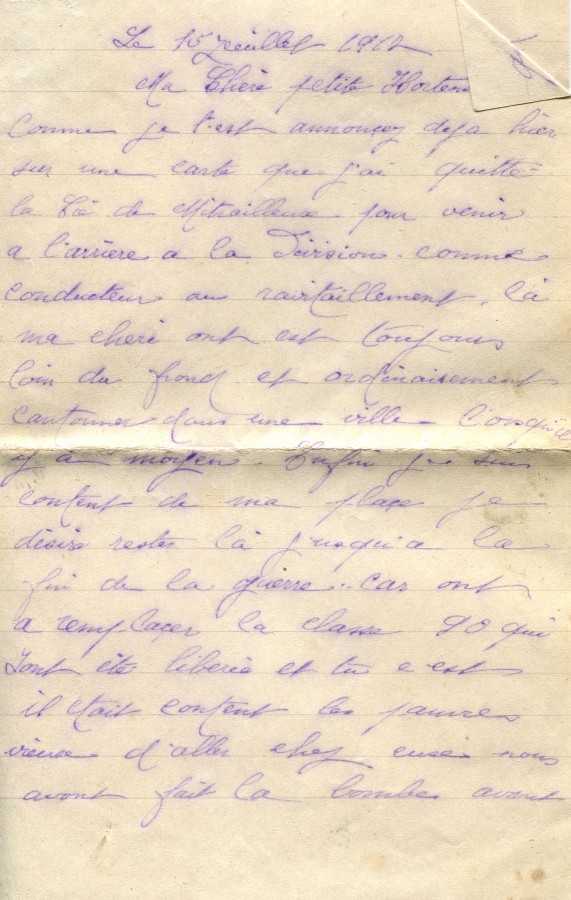 Le 15 Juillet 1917
Ma Chère petite Hortense
Comme je t'est annoncez deja hier
sur une carte que j'ai quitté
la Cie de Mitrailleuse pour venir
a l'arrière a la Division comme
conducteur au ravitaillement. là
ma cheri ont est toujours
loin du frond et ordinairement
cantonner dans une ville lorsqu'il
y a moyen. Enfin je suis
content de ma place je
désire rester là jusqu'a la
fin de la guerre. car ont
a remplacer la classe 90 qui
sont été liberée et tu
il était content les pauvres
vieux d'aller chez nous
avont fait la bombe avant